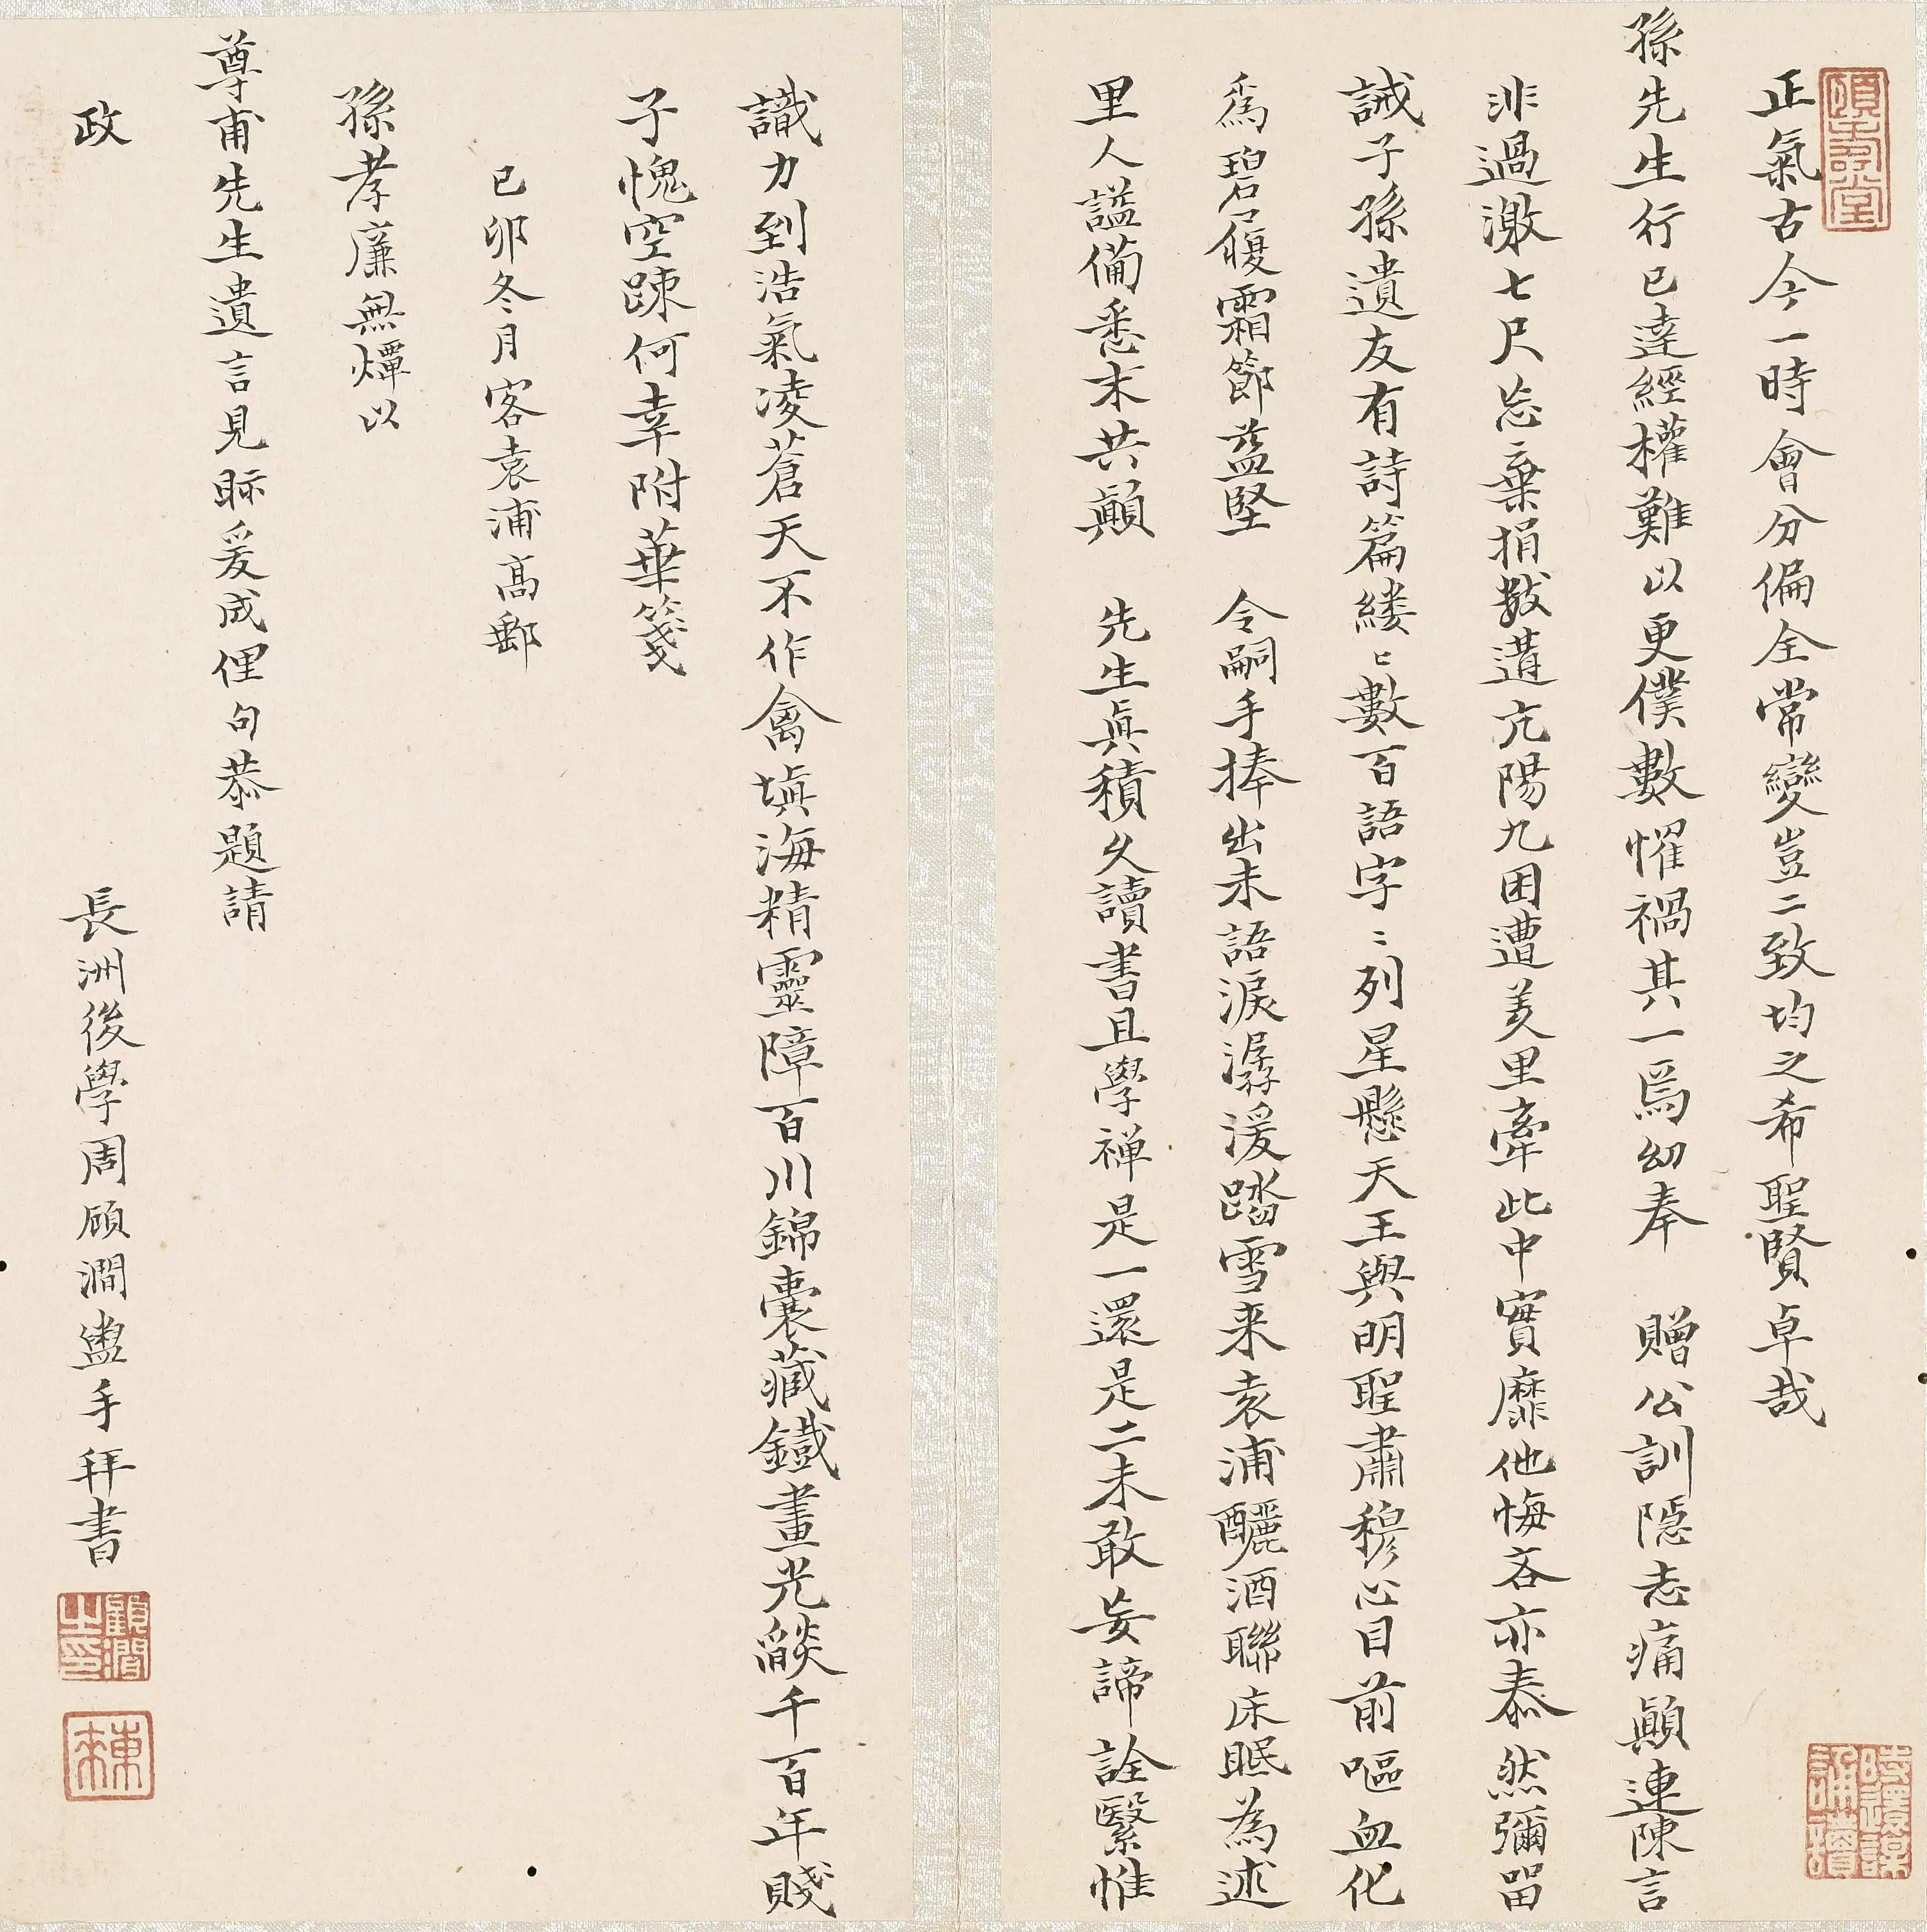 正氣古今一時會分偏全常變豈二致均之希聖賢卓哉
孫先生行已達經權難以更僕數懼禍其一焉幼奉　贈公訓隱志痛顛連陳言
非過激七尺忘棄捐數遘亢陽九困遭羑里牽此中實靡他悔吝亦泰然彌留
誡子孫遺友有詩篇縷〻數百語字〻列星懸天王與明聖肅穆心目前嘔血化
為碧履霜節益堅　令嗣手捧出未語淚潺湲踏雪来袁浦釃酒聯床眠為述
里人謚備悉末共顛　先生真積久讀書且學禅是一還是二未敢妄諦詮繄惟
識力到浩氣凌蒼天不作禽填海精靈障百川錦囊藏鐵畫光燄千百年賤
子愧空踈何幸附華箋
已卯冬月客袁浦高郵
孫孝廉無燀以
尊甫先生遺言見眎爰成俚句恭題請
政
長洲後學周顧澗盥手拜書
顧澗之印
東來